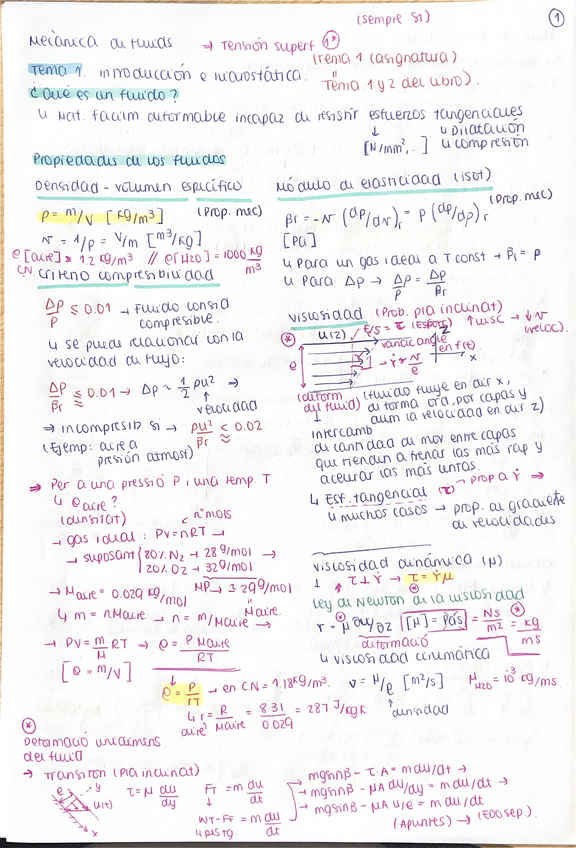 (sempre SI)
1
Mecànica de fluids → Tensión superf 1*
(Tema 1 (asignatura)
Tema 1. Introducción e hidrostática. " Tema 1 y 2 del libro).
¿Qué es un fluido?
↳ Mat. facilm deformable incapaz de resistir esfuerzos tangenciales
↓ ↳ Dilatación
[N/mm²,..] ↳ compresión
Propiedades de los fluidos
Densidad - volumen específico
ρ = m/V [kg/m³] (Prop. mec)
v = 1/ρ = V/m [m³/kg]
ρ[aire] = 1.2 kg/m³ // ρ[H2O] = 1000 kg/m³
C.N.
Criterio compresibilidad
Δρ/ρ ≤ 0.01 → Fluido consid
compresible.
↳ se puede relacionar con la
velocidad de flujo:
Δp/βT ≤ 0.01 → Δp ~ 1/2 ρu² →
↑ velocidad
⇒ incompresib si → ρu²/βT ≤ 0.02
(Ejemp: aire a
presión atmost)
⇒ Per a una pressió P i una temp. T
↳ ρ aire?
(densitat) nº mols
→ gas ideal: PV = nRT →
→ suposant 80% N2 → 28 g/mol →
20% O2 → 32 g/mol
MP → ≈ 29 g/mol
→ Maire = 0.029 kg/mol Maire.
↳ m = nMaire → n = m/Maire →
→ PV = m/M RT → ρ = P·Maire/RT
[ρ = m/V]
ρ = P/rT → en C.N = 1.18 kg/m³.
↳ r aire = R/Maire = 8.31/0.029 = 287 J/kgK
Módulo de elasticidad (isot)
βT = -v (dp/dv)T = ρ (dp/dρ)T (Prop. mec)
[Pa]
↳ Para un gas ideal a T const → βT = p
↳ Para Δp → Δρ/ρ = Δp/βT
Viscosidad (Prob. pla inclinat)
* u(z) F/S = τ (Esport) z ↑ visc → ↓ v
(veloc).
variac angle
en f(t).
e → γ̇ ≈ v/e x
(deform
del fluid) (fluido fluye en dir x,
de forma ord, por capas y
aum la velocidad en dir z)
↓
Intercamb
de cantidad de mov entre capas
que tienden a frenar las más rap y
acelerar las más lentas.
↳ Esf. tangencial (τ) → prop a γ̇ ⇒
↳ muchos casos → prop. al gradiente
de velocidades
Viscosidad dinámica (μ)
↓ ↑ τ ↓ γ̇ → τ = γ̇μ
Ley de Newton de la viscosidad
τ = μ ∂u/∂z [μ] = [Pa·s] = Ns/m² = kg/ms
deformació
↳ Viscosidad cinemática
ν = μ/ρ [m²/s] μH2O = 10⁻³ kg/ms
↑ densidad
*
Deformació unidimens.
del fluid
→ Transitori (Pla inclinat)
e y u(t) x
τ = μ du/dy FT = m du/dt
↓
WT - FF = m du/dt
→ mgsinβ - τ·A = m du/dt →
→ mgsinβ - μA du/dy = m du/dt →
→ mgsinβ - μA u/e = m du/dt
(Apuntes) → (EDO sep.)